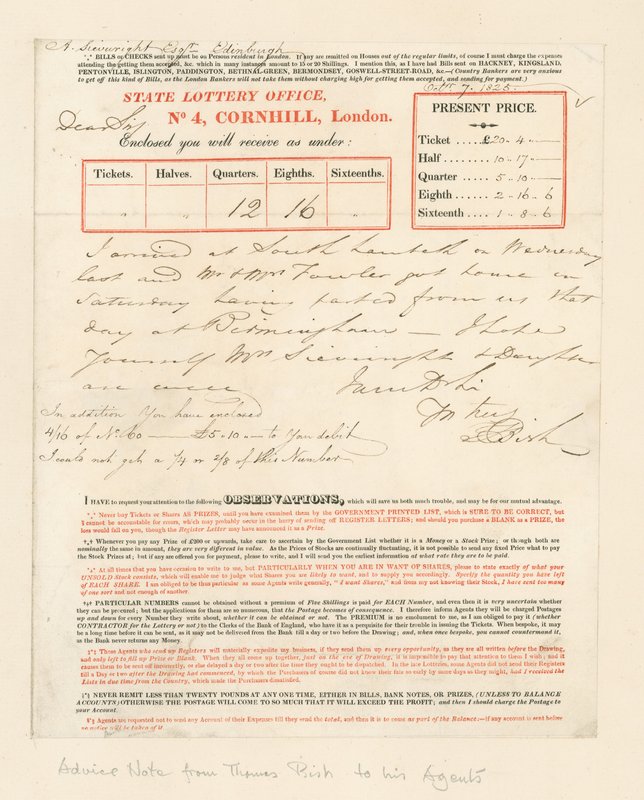 R. Sievwright Esqr. Edinburgh
*** BILLS or CHECKS sent up must be on Persons resident in London. If any are remitted on Houses out of the regular limits, of course I must charge the expenses
attending the getting them accepted, &c. which in many instances amount to 15 or 20 Shillings. I mention this, as I have had Bills sent on HACKNEY, KINGSLAND,
PENTONVILLE, ISLINGTON, PADDINGTON, BETHNAL-GREEN, BERMONDSEY, GOSWELL-STREET-ROAD, &c.—(Country Bankers are very anxious
to get off this kind of Bills, as the London Bankers will not take them without charging high for getting them accepted, and sending for payment.)
Octr. 7. 1825.
STATE LOTTERY OFFICE,
No 4, CORNHILL, London.
Dear Sir,
Enclosed you will receive as under:
Tickets. Halves. Quarters. Eighths. Sixteenths.
" " 12 16 "
PRESENT PRICE.
Ticket .... £20 - 4 - "
Half ........ 10 - 17 - "
Quarter ..... 5 - 10 - "
Eighth ...... 2 - 16 - 6
Sixteenth .... 1 - 8 - 6
I arrived at South Lambeth on Wednesday
last and Mr & Mrs Fowler got home on
Saturday having parted from us that
day at Birmingham — I hope
Yourself Mrs Sievwright & Daughter
are well
I am Dr Sir
Yrs truly
T Bish
In addition You have enclosed
4/16 of No. 60 — £5 - 10 - " to You debit
I could not get a 1/4 or 2/8 of this Number
I HAVE to request your attention to the following OBSERVATIONS, which will save us both much trouble, and may be for our mutual advantage.
*** Never buy Tickets or Shares AS PRIZES, until you have examined them by the GOVERNMENT PRINTED LIST, which is SURE TO BE CORRECT, but
I cannot be accountable for errors, which may probably occur in the hurry of sending off REGISTER LETTERS; and should you purchase a BLANK as a PRIZE, the
loss would fall on you, though the Register Letter may have announced it as a Prize.
†*† Whenever you pay any Prize of £200 or upwards, take care to ascertain by the Government List whether it is a Money or a Stock Prize; or though both are
nominally the same in amount, they are very different in value. As the Prices of Stocks are continually fluctuating, it is not possible to send any fixed Price what to pay
the Stock Prizes at; but if any are offered you for payment, please to write, and I will send you the earliest information at what rate they are to be paid.
*** At all times that you have occasion to write to me, but PARTICULARLY WHEN YOU ARE IN WANT OF SHARES, please to state exactly of what your
UNSOLD Stock consists, which will enable me to judge what Shares you are likely to want, and to supply you accordingly. Specify the quantity you have left
of EACH SHARE. I am obliged to be thus particular as some Agents write generally, "I want Shares," and from my not knowing their Stock, I have sent too many
of one sort and not enough of another.
†*† PARTICULAR NUMBERS cannot be obtained without a premium of Five Shillings is paid for EACH Number, and even then it is very uncertain whether
they can be procured; but the applications for them are so numerous, that the Postage becomes of consequence. I therefore inform Agents they will be charged Postages
up and down for every Number they write about, whether it can be obtained or not. The PREMIUM is no emolument to me, as I am obliged to pay it (whether
CONTRACTOR for the Lottery or not) to the Clerks of the Bank of England, who have it as a requisite for their trouble in issuing the Tickets. When bespoke, it may
be a long time before it can be sent, as it may not be delivered from the Bank till a day or two before the Drawing; and, when once bespoke, you cannot countermand it,
as the Bank never returns any Money.
‡*‡ Those Agents who send my Registers will materially expedite my business, if they send them up every opportunity, as they are all written before the Drawing,
and only left to fill up Prize or Blank. When they all come up together, just on the eve of Drawing, it is impossible to pay that attention to them I wish; and it
causes them to be sent off incorrectly, or else delayed a day or two after the time they ought to be dispatched. In the late Lotteries, some Agents did not send their Registers
till a Day or two after the Drawing had commenced, by which the Purchasers of course did not know their fate so early by more days as they might, had I received the
Lists in due time from the Country, which made the Purchasers dissatisfied.
‡*‡ NEVER REMIT LESS THAN TWENTY POUNDS AT ANY ONE TIME, EITHER IN BILLS, BANK NOTES, OR PRIZES, (UNLESS TO BALANCE
ACCOUNTS) OTHERWISE THE POSTAGE WILL COME TO SO MUCH THAT IT WILL EXCEED THE PROFIT; and then I should charge the Postage to
your Account.
‡*‡ Agents are requested not to send any Account of their Expenses till they send the total, and then it is to come as part of the Balance:—if any account is sent before
no notice will be taken of it.
Advice Note from Thomas Bish to his Agents